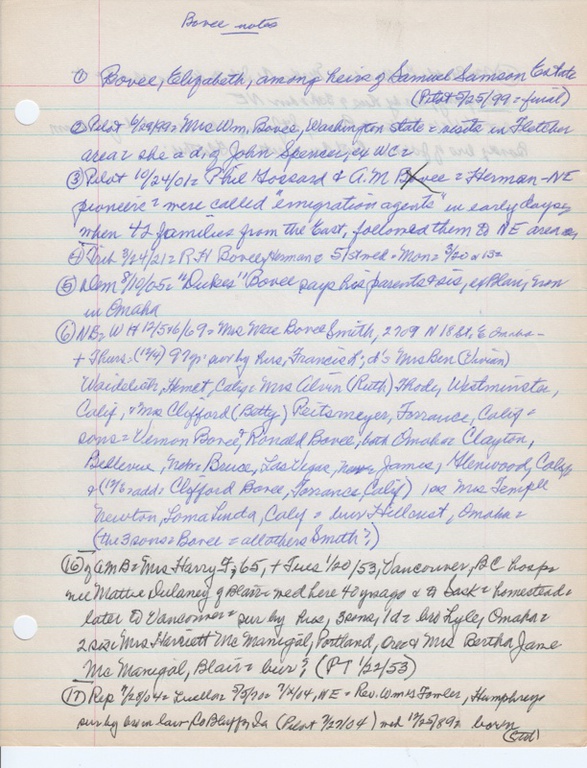 Bovee notes
① Bovee, Elizabeth, among heirs of Samuel Samson Estate
(Pilot 5/25/99 = final)
② Pilot 6/29/99 = Mrs Wm. Bovee, Washington State = visits in Fletcher
area = she a d. of John Spencer, of WC =
③ Pilot 10/24/01 = Phil Gossard & A.M Bovee = Herman - NE
pioneers = were called "emigration agents" in early days,
when 42 families from the East, followed them to NE area
④ 3/24/21 = R H Bovee, Herman = Mon = 3/20
⑤ 8/10/05 = "Dukes" Bovee says his parents & sis, of Blair, now
in Omaha
⑥ NB = W H 12/5 & 6/69 = Mrs Bovee Smith, 2709 N 18 St, E Omaha -
+ Thurs = (12/4) 97 yr = sur by hus, Francis R; d's Mrs Ben (Vivian)
Hemet, Calif = Mrs Alvin (Ruth) Westminster,
Calif, & Mrs Clifford (Betty) Peitsmeyer, Torrance, Calif =
sons = Vernon Bovee, Ronald Bovee, both Omaha = Clayton,
Bellevue, Nebr = Bruce, Las Vegas, James, Glenwood,
& (12/6 adds Clifford Bovee, Torrance, Calif) Mrs Temple
Newton, Loma Linda, Calif = bur Hillcrest, Omaha =
(the 3 sons = Bovee = all others Smith?)
⑯ of AMB = Mrs Harry F, 65, + Tues 1/20/53, Vancouver, BC hosp =
nee Mattie Dulaney of Blair = wed here 40 yrs ago & to Sask = homestead =
later to Vancouver = sur by hus, 3 sons, 1 d = bro Lyle, Omaha =
2 sis = Mrs Harriett Mc Manigal, Portland, Ore & Mrs Bertha Jane
Mc Manigal, Blair = bur? (PT 1/22/53)
⑰ Rep 7/20/04 = Luella = 7/4/04, NE = Rev. Wm Fowler, Humphreys
sur by Co Bluffs, Ia (Pilot 7/27/04) wed 12/25/89 = born